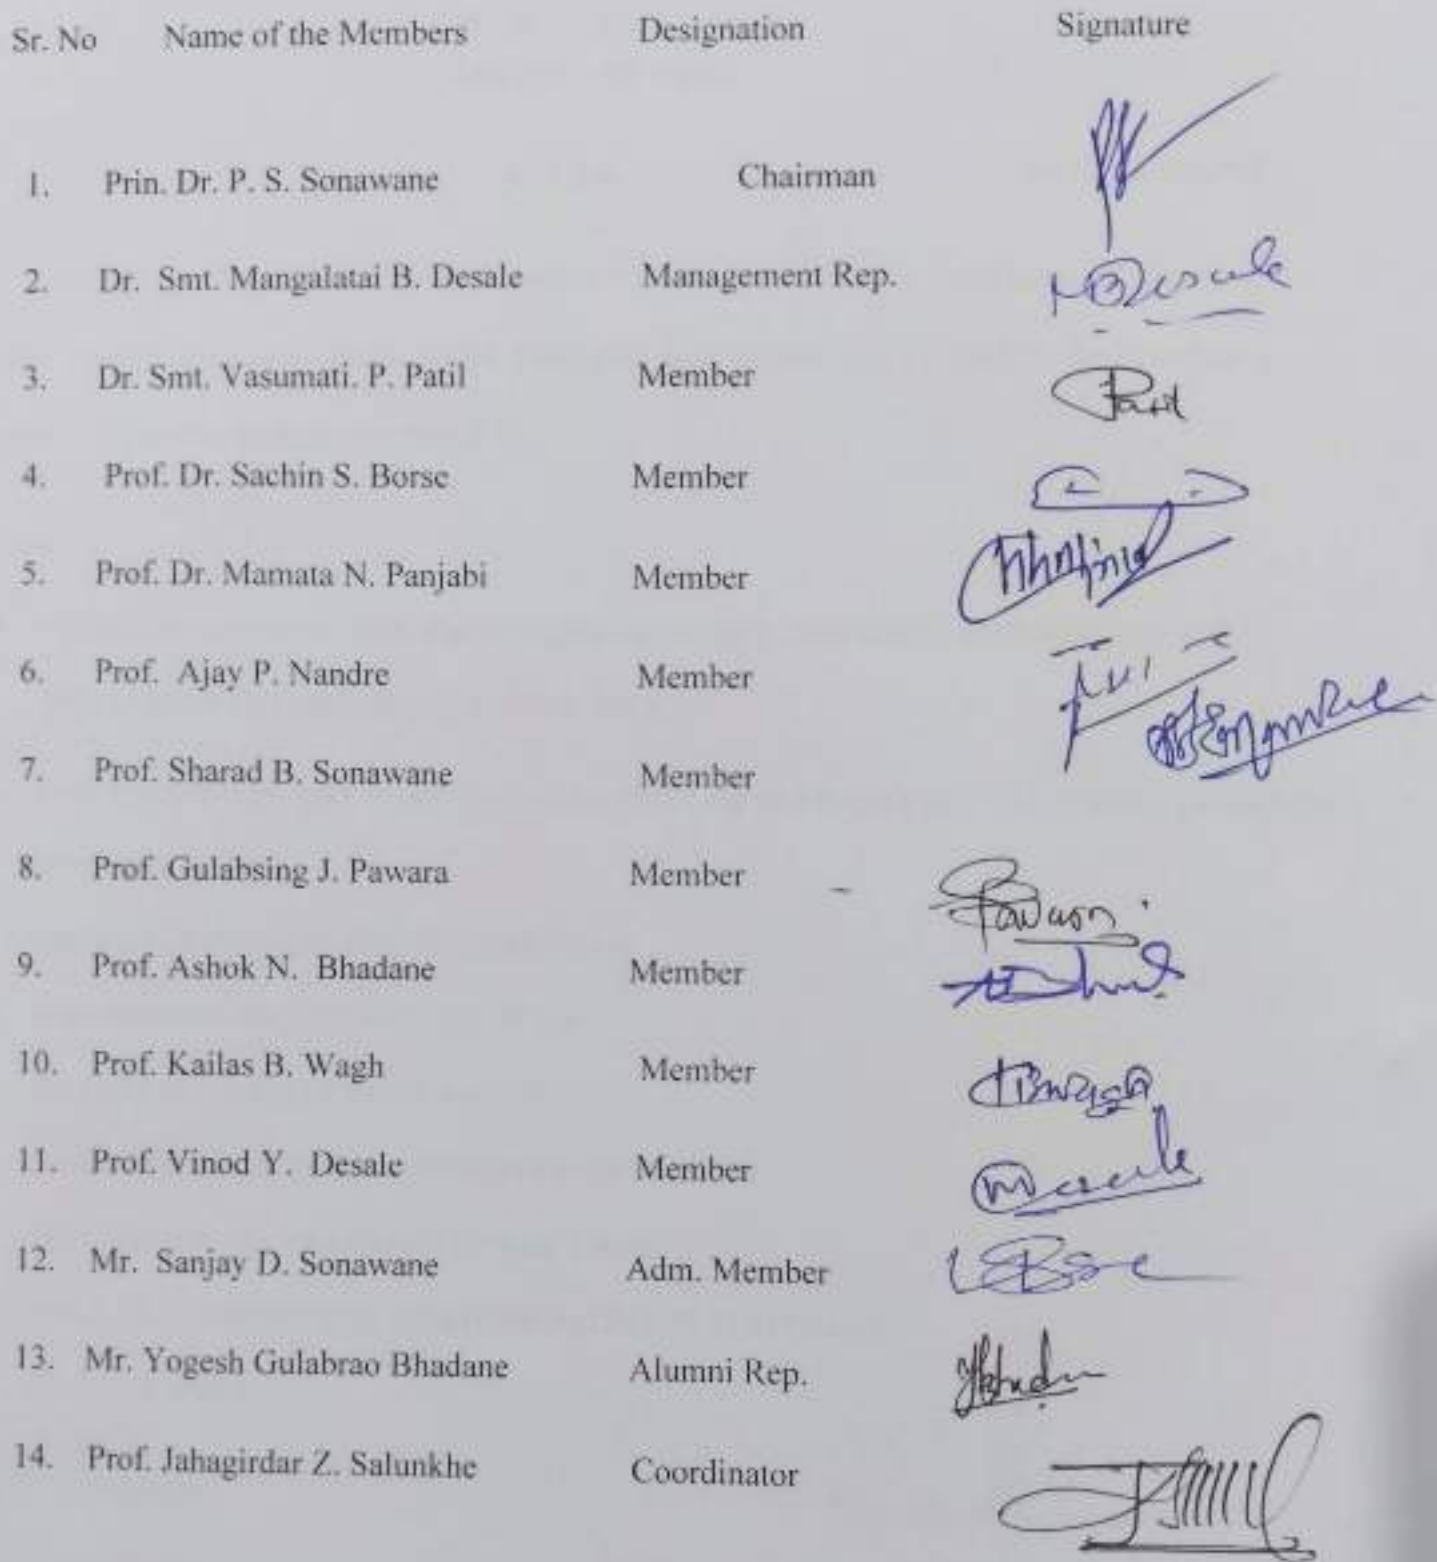 Sr. No Name of the Members Designation Signature
1. Prin. Dr. P. S. Sonawane Chairman
2. Dr. Smt. Mangalatai B. Desale Management Rep. MBDesale
3. Dr. Smt. Vasumati. P. Patil Member
4. Prof. Dr. Sachin S. Borse Member
5. Prof. Dr. Mamata N. Panjabi Member
6. Prof. Ajay P. Nandre Member
7. Prof. Sharad B. Sonawane Member
8. Prof. Gulabsing J. Pawara Member
9. Prof. Ashok N. Bhadane Member
10. Prof. Kailas B. Wagh Member
11. Prof. Vinod Y. Desale Member
12. Mr. Sanjay D. Sonawane Adm. Member
13. Mr. Yogesh Gulabrao Bhadane Alumni Rep.
14. Prof. Jahagirdar Z. Salunkhe Coordinator